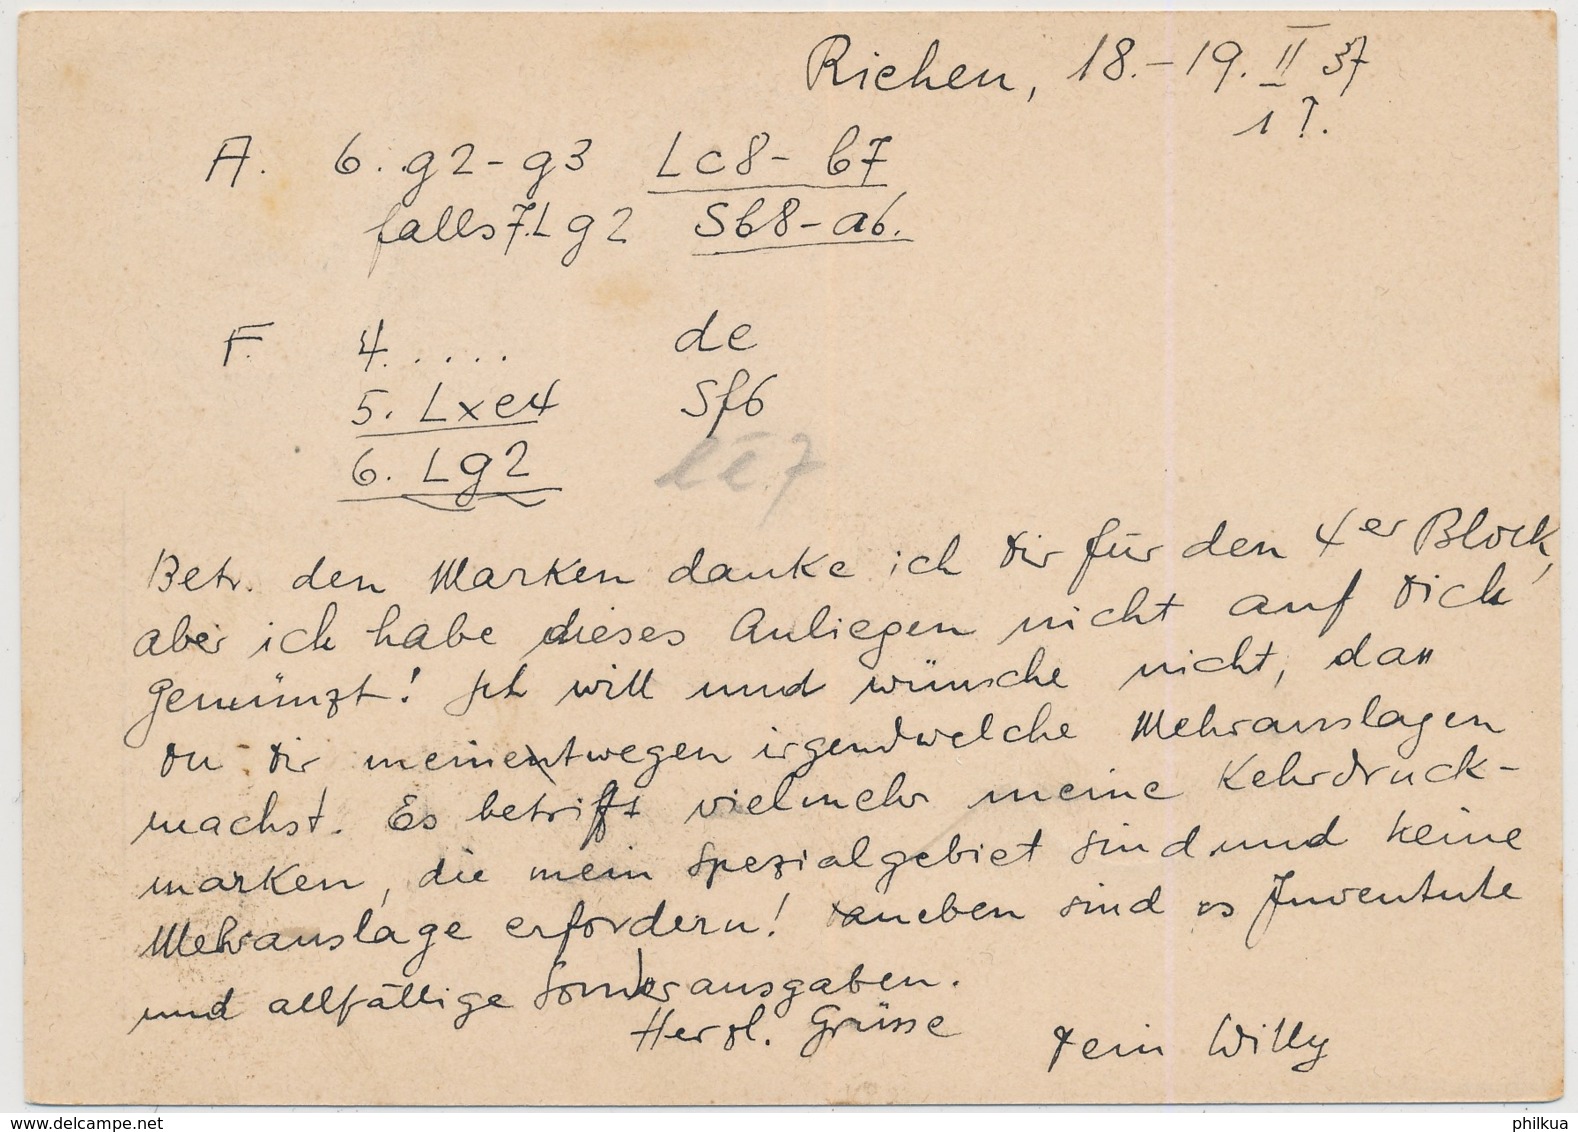 Riehen, 18.-19. II 37
1 T.
A. 6. g2-g3 Lc8- b7
falls 7. Lg2 Sb8-a6.
F. 4..... de
5. Lxe4 Sf6
6. Lg2
Betr. den Marken danke ich Dir für den 4er Block,
aber ich habe dieses Anliegen nicht auf Dich
gemünzt! Ich will und wünsche nicht, dass
Du Dir meinetwegen irgendwelche Mehrauslagen
machst. Es betrifft vielmehr meine Kehrdruck-
marken, die mein Spezialgebiet sind und keine
Mehrauslage erfordern! Daneben sind es Juventute
und allfällige Sonderausgaben.
Herzl. Grüsse Dein Willy
www.delcampe.net
philkua